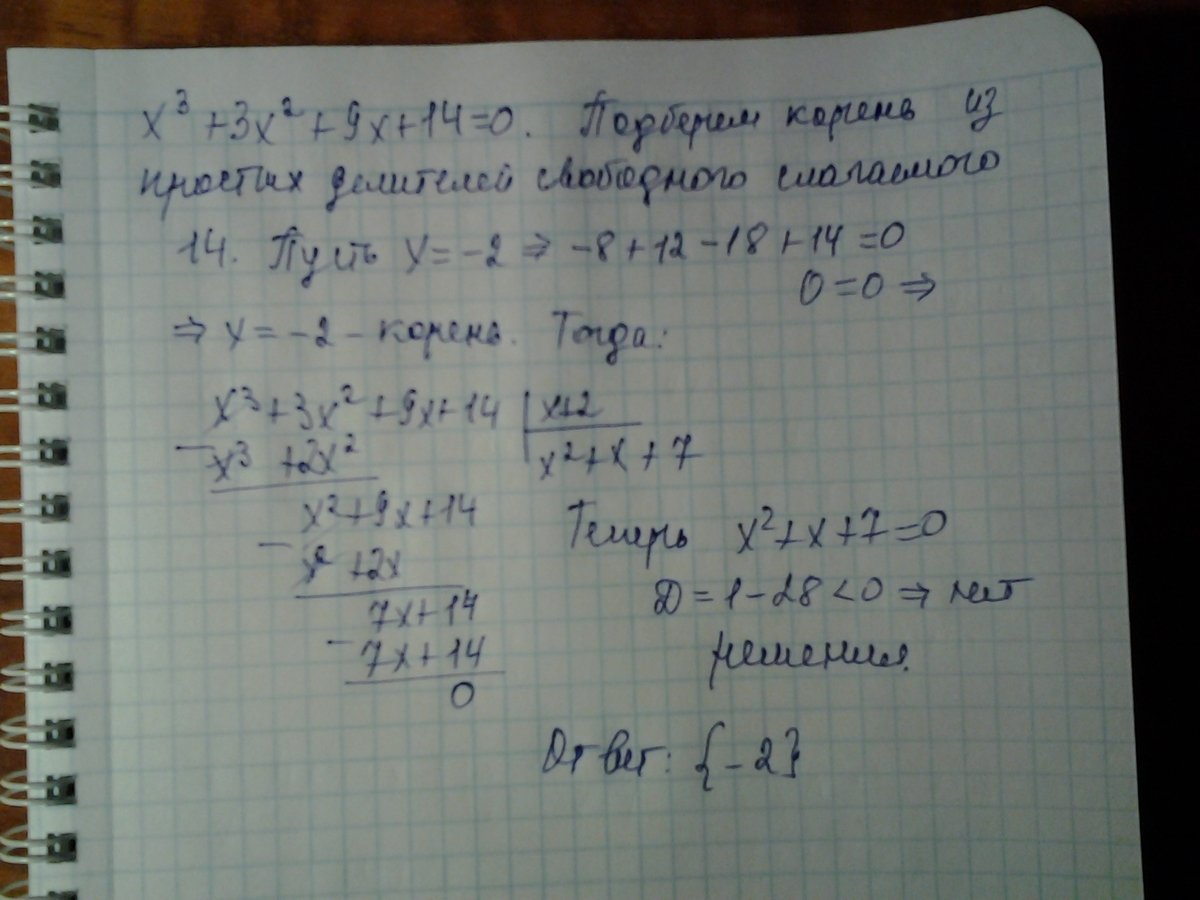 x³ + 3x² + 9x + 14 = 0. Подберем корень из
простых делителей свободного слагаемого
14. Пусть x = -2 ⇒ -8 + 12 - 18 + 14 = 0
0 = 0 ⇒
⇒ x = -2 - корень. Тогда:
x³ + 3x² + 9x + 14 | x+2
- x³ + 2x² | x² + x + 7
x² + 9x + 14
- x² + 2x
7x + 14
- 7x + 14
0
Теперь x² + x + 7 = 0
D = 1 - 28 < 0 ⇒ нет
решения.
Ответ: {-2}